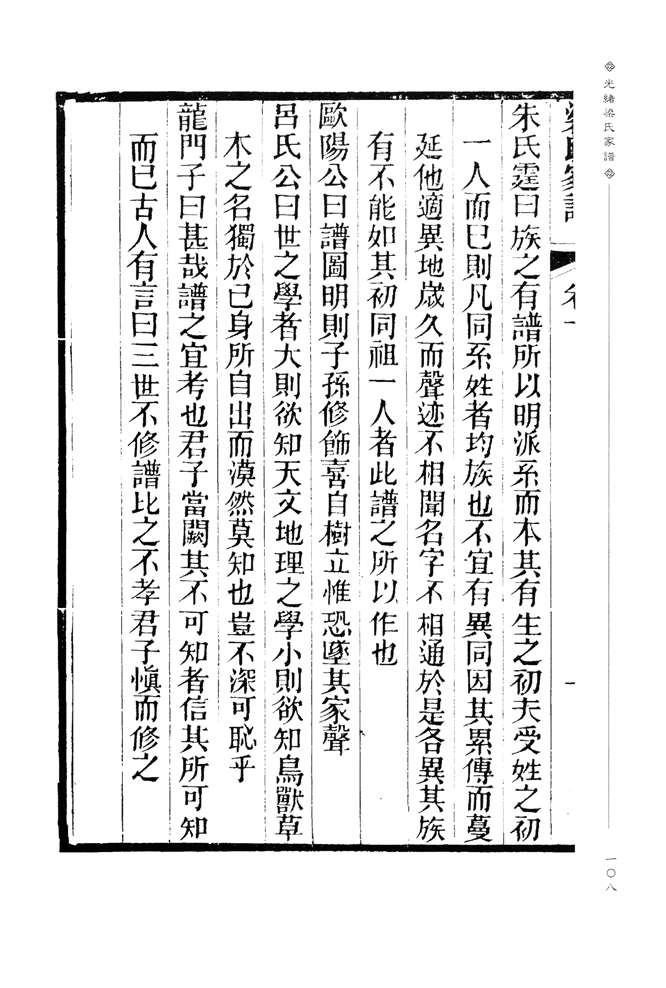 光緒梁氏家譜
一〇八
梁氏家譜 卷一 一
朱氏霆曰族之有譜所以明派系而本其有生之初夫受姓之初
一人而已則凡同系姓者均族也不宜有異同因其累傳而蔓
延他適異地歲久而聲迹不相聞名字不相通於是各異其族
有不能如其初同祖一人者此譜之所以作也
歐陽公曰譜圖明則子孫修飾喜自樹立惟恐墜其家聲
呂氏公曰世之學者大則欲知天文地理之學小則欲知鳥獸草
木之名獨於已身所自出而漠然莫知也豈不深可恥乎
龍門子曰甚哉譜之宜考也君子當闕其不可知者信其所可知
而已古人有言曰三世不修譜比之不孝君子慎而修之